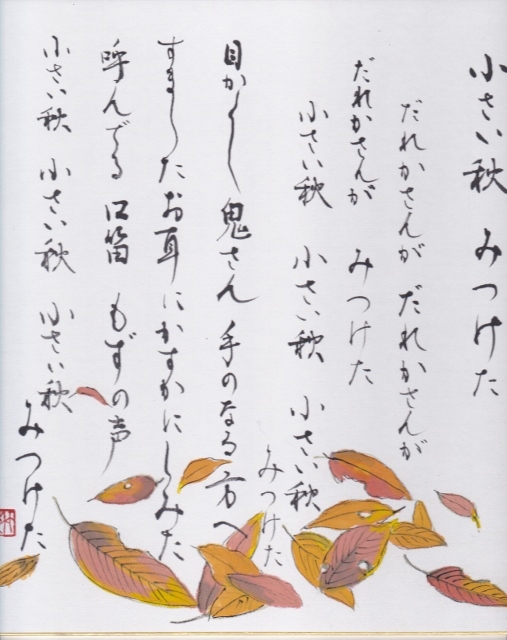 小さい秋 みつけた
だれかさんが だれかさんが
だれかさんが みつけた
小さい秋 小さい秋 小さい秋
みつけた
目かくし鬼さん 手のなる方へ
すましたお耳にかすかにしみた
呼んでる口笛 もずの声
小さい秋 小さい秋 小さい秋
みつけた